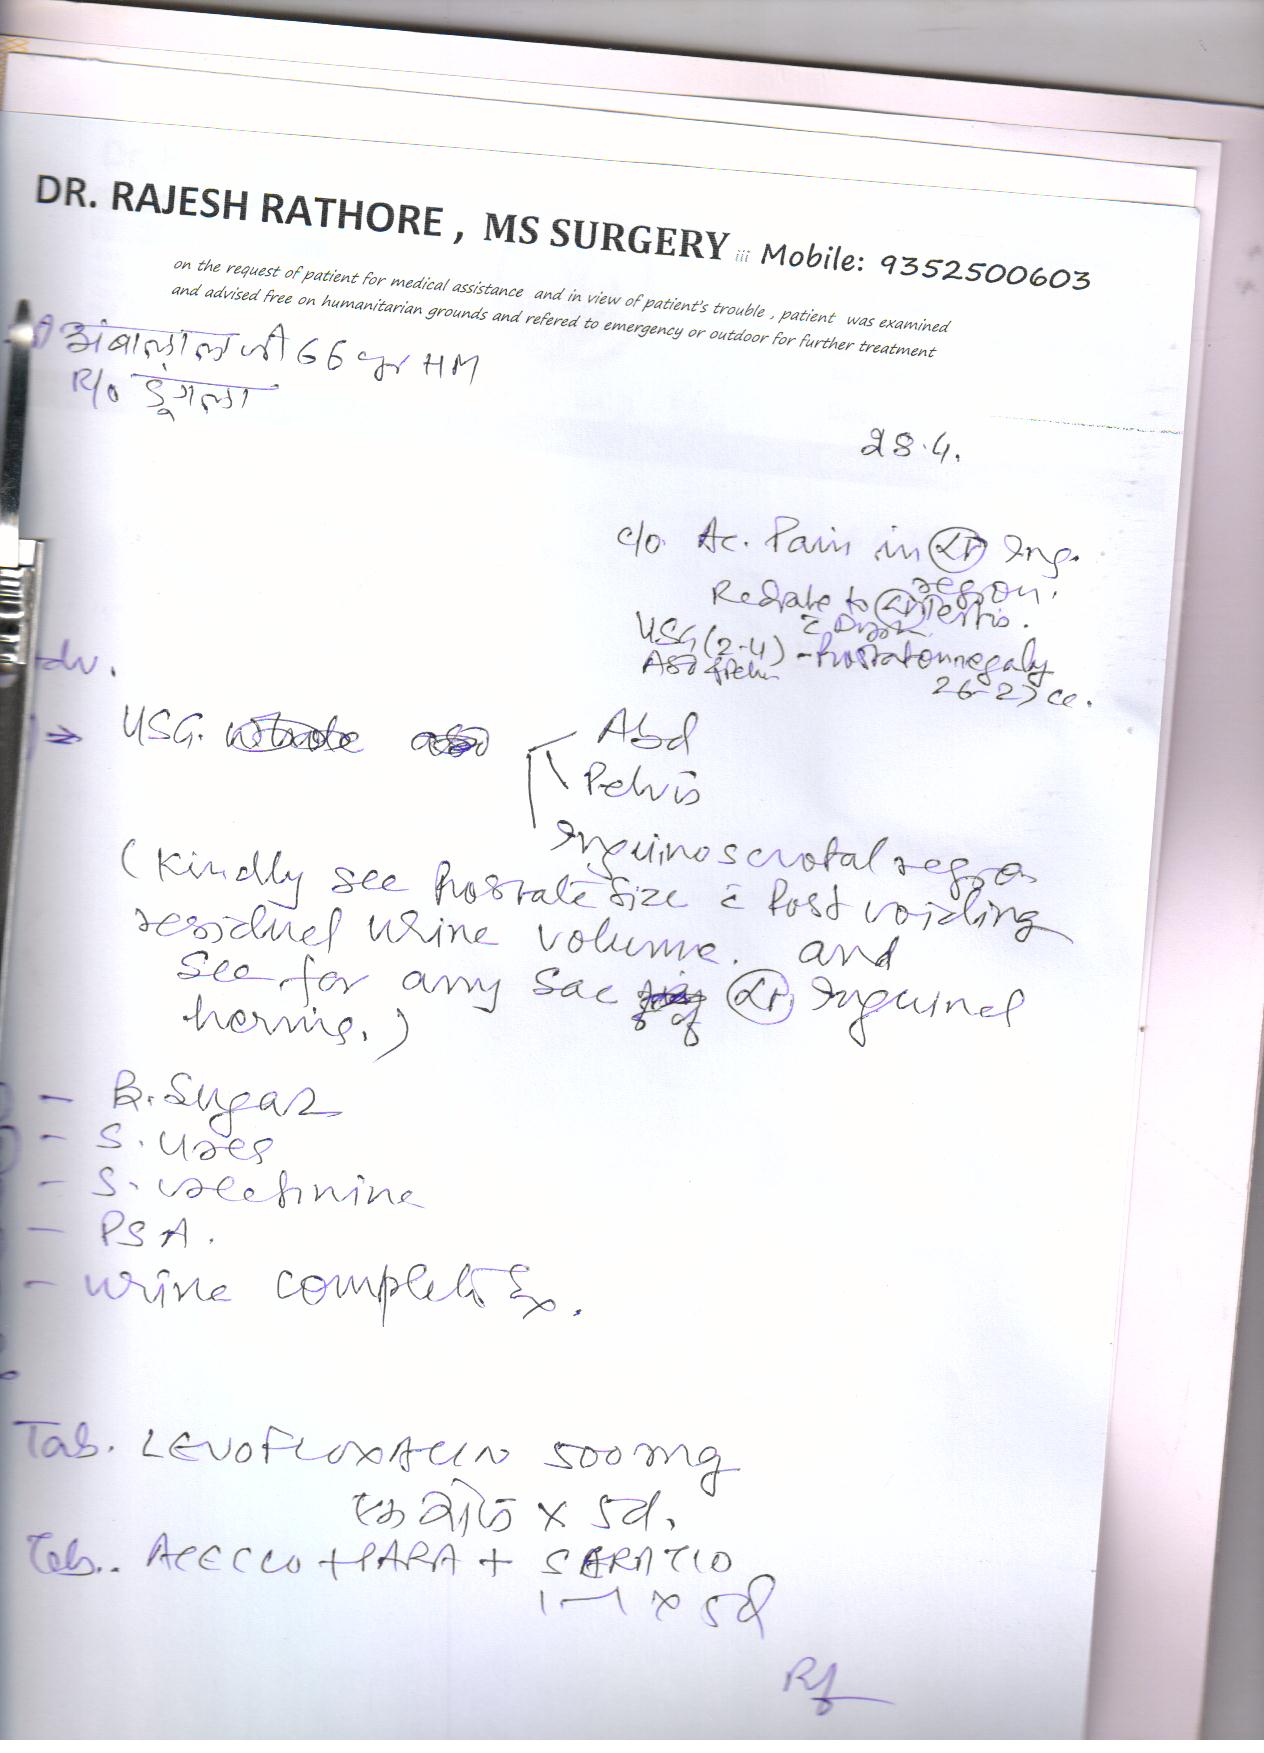 DR. RAJESH RATHORE, MS SURGERY iii Mobile: 9352500603
on the request of patient for medical assistance and in view of patient's trouble, patient was examined
and advised free on humanitarian grounds and refered to emergency or outdoor for further treatment
अंबालाल जी 66 yr HM
R/o डूंगला
28.4.
c/o. Ac. Pain in Lt Ing.
region.
Radiate to Lt Testis.
USG (2-4) - Prostatomegaly
26-27 cc.
Adv.
USG. Abd
Pelvis
Inguinoscrotal region
(Kindly see Prostate Size c̄ Post voiding
residuel urine volume. and
See for any Sac of Lt Inguinel
hernia.)
- B. Sugar
- S. urea
- S. creatinine
- PSA.
- Urine complete Ex.
Tab. LEVOFLOXACIN 500mg
एक रोज x 5d.
Tab.. ACECLO + PARA + SERATIO
1-1 x 5d